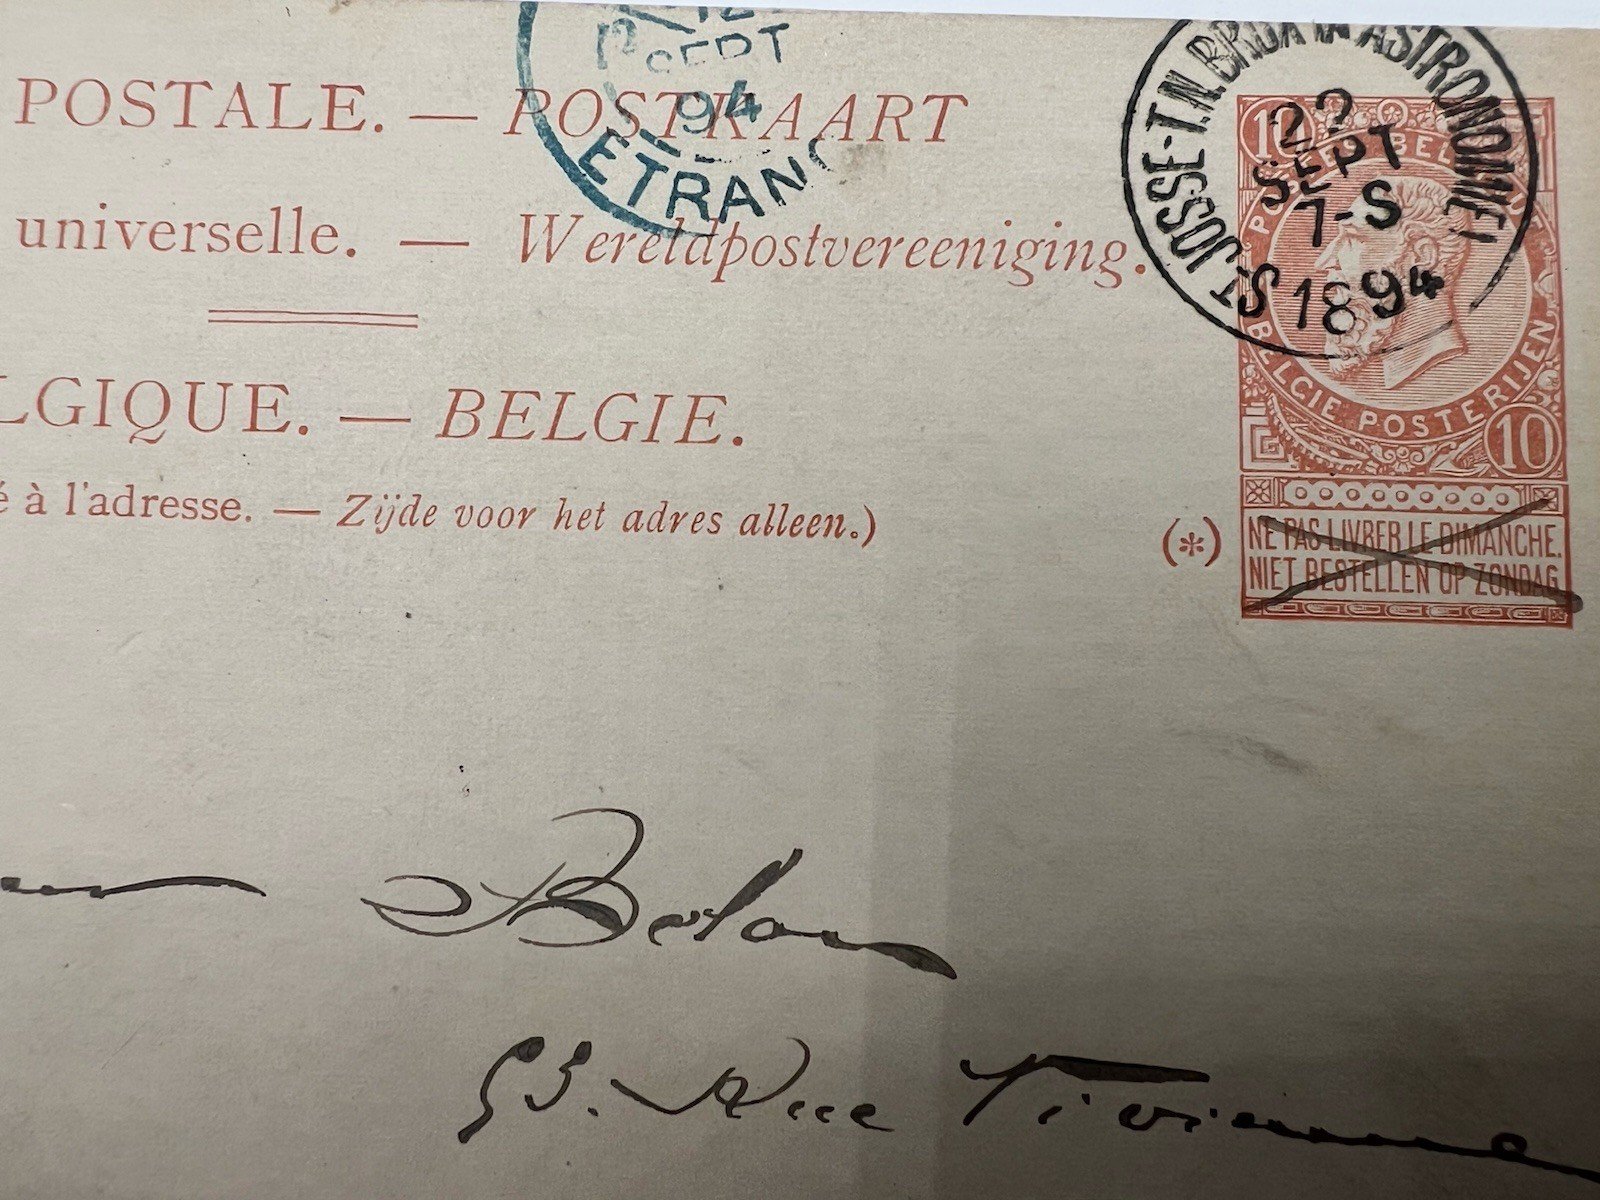 POSTALE. — POSTKAART
universelle. — Wereldpostvereeniging.
LGIQUE. — BELGIE.
é à l'adresse. — Zijde voor het adres alleen.)
SEPT
94
ETRANG
ST-JOSSE-T.N. BRUX ASTRONOMIE
22
SEPT
7-S
1894
10
POSTES BELG
BELGIE POSTERIJEN
10
(*)
NE PAS LIVRER LE DIMANCHE.
NIET BESTELLEN OP ZONDAG
53. Rue Vivienne